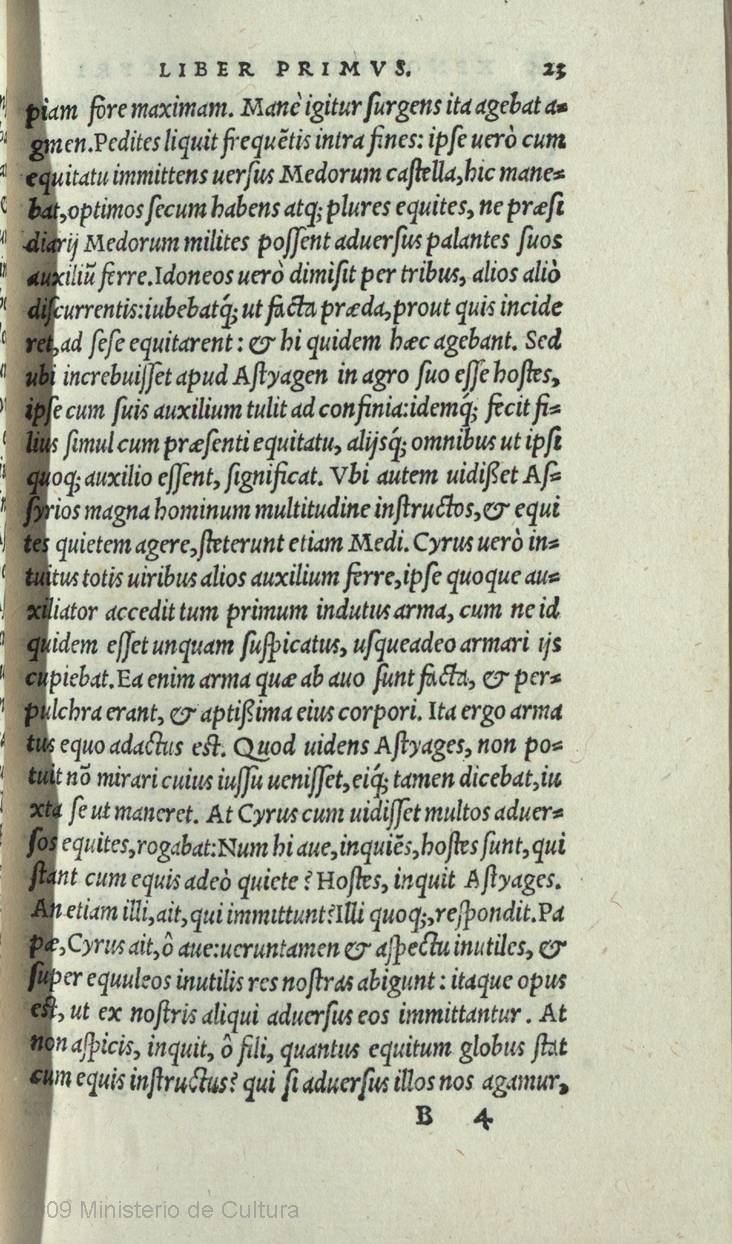 LIBER PRIMVS. 23
piam fore maximam. Manè igitur ſurgens ita agebat a-
gmen.Pedites liquit frequẽtis intra fines: ipſe uerò cum
equitatu immittens uerſus Medorum caſtella,hic mane-
bat,optimos ſecum habens atq; plures equites, ne præſi
diarij Medorum milites poſſent aduerſus palantes ſuos
auxiliũ ferre.Idoneos uerò dimiſit per tribus, alios aliò
diſcurrentis:iubebatq́; ut facta præda,prout quis incide
ret,ad ſeſe equitarent: & hi quidem hæc agebant. Sed
ubi increbuiſſet apud Aſtyagen in agro ſuo eſſe hoſtes,
ipſe cum ſuis auxilium tulit ad confinia:idemq́; fecit fi-
lius ſimul cum præſenti equitatu, alijsq́; omnibus ut ipſi
quoq; auxilio eſſent, ſignificat. Vbi autem uidißet Aſ-
ſyrios magna hominum multitudine inſtructos,& equi
tes quietem agere,ſteterunt etiam Medi. Cyrus uerò in-
tuitus totis uiribus alios auxilium ferre,ipſe quoque au-
xiliator accedit tum primum indutus arma, cum ne id
quidem eſſet unquam ſuſpicatus, uſqueadeo armari ijs
cupiebat.Ea enim arma quæ ab auo ſunt facta, & per-
pulchra erant, & aptißima eius corpori. Ita ergo arma
tus equo adactus eſt. Quod uidens Aſtyages, non po-
tuit nõ mirari cuius iuſſu ueniſſet,eiq́; tamen dicebat,iu
xta ſe ut maneret. At Cyrus cum uidiſſet multos aduer-
ſos equites,rogabat:Num hi aue,inquiẽs,hoſtes ſunt,qui
ſtant cum equis adeò quiete? Hoſtes, inquit Aſtyages.
An etiam illi,ait,qui immittunt?Illi quoq;,reſpondit.Pa
pæ,Cyrus ait,ô aue:ueruntamen & aſpectu inutiles, &
ſuper equuleos inutilis res noſtras abigunt: itaque opus
eſt, ut ex noſtris aliqui aduerſus eos immittantur. At
non aſpicis, inquit, ô fili, quantus equitum globus ſtat
cum equis inſtructus? qui ſi aduerſus illos nos agamur,
B 4
2009 Ministerio de Cultura